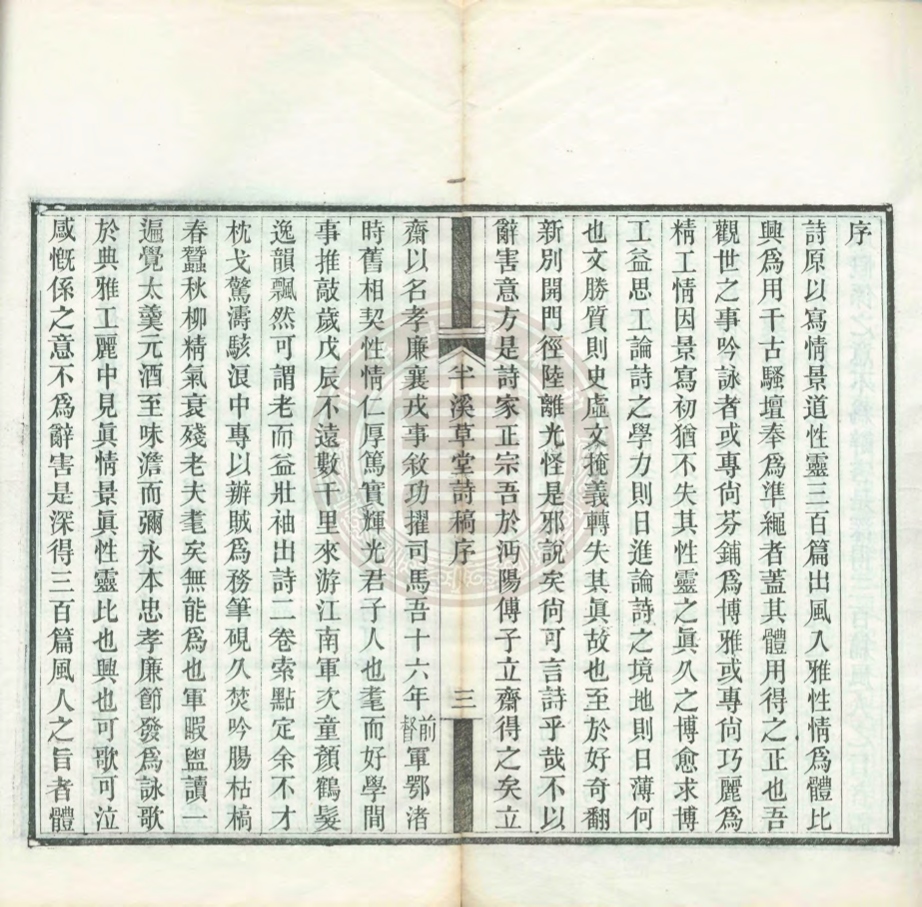 序
詩原以寫情景道性靈三百篇出風入雅性情爲體比
興爲用千古騷壇奉爲準繩者蓋其體用得之正也吾
觀世之事吟詠者或專尙芬鋪爲博雅或專尙巧麗爲
精工情因景寫初猶不失其性靈之眞久之博愈求博
工益思工論詩之學力則日進論詩之境地則日薄何
也文勝質則史虛文掩義轉失其眞故也至於好奇翻
新別開門徑陸離光怪是邪說矣尙可言詩乎哉不以
辭害意方是詩家正宗吾於沔陽傅子立齋得之矣立
半溪草堂詩稿序 三
齋以名孝廉襄戎事敘功擢司馬吾十六年前督軍鄂渚
時舊相契性情仁厚篤實輝光君子人也耄而好學間
事推敲歲戊辰不遠數千里來游江南軍次童顏鶴髮
逸韻飄然可謂老而益壯袖出詩二卷索點定余不才
枕戈驚濤駭浪中專以辦賊爲務筆硯久焚吟腸枯槁
春蠶秋柳精氣衰殘老夫耄矣無能爲也軍暇盥讀一
遍覺太羹元酒至味澹而彌永本忠孝廉節發爲詠歌
於典雅工麗中見眞情景眞性靈比也興也可歌可泣
感慨係之意不爲辭害是深得三百篇風人之旨者體